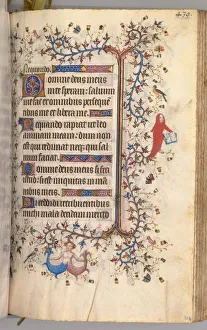 ne quando.
Domine deus meus
in te speravi: salvum
me fac ex omnibus perseque
tibus me et libera me.
Nequando rapiat ut leo
animam meam: dum non
est qui redimat neqz qui sal
vum faciat.
Domine deus meus si feci
istud: si est iniquitas in ma
nibus meis.
Si reddidi retribuentibus
michi mala decidam merito